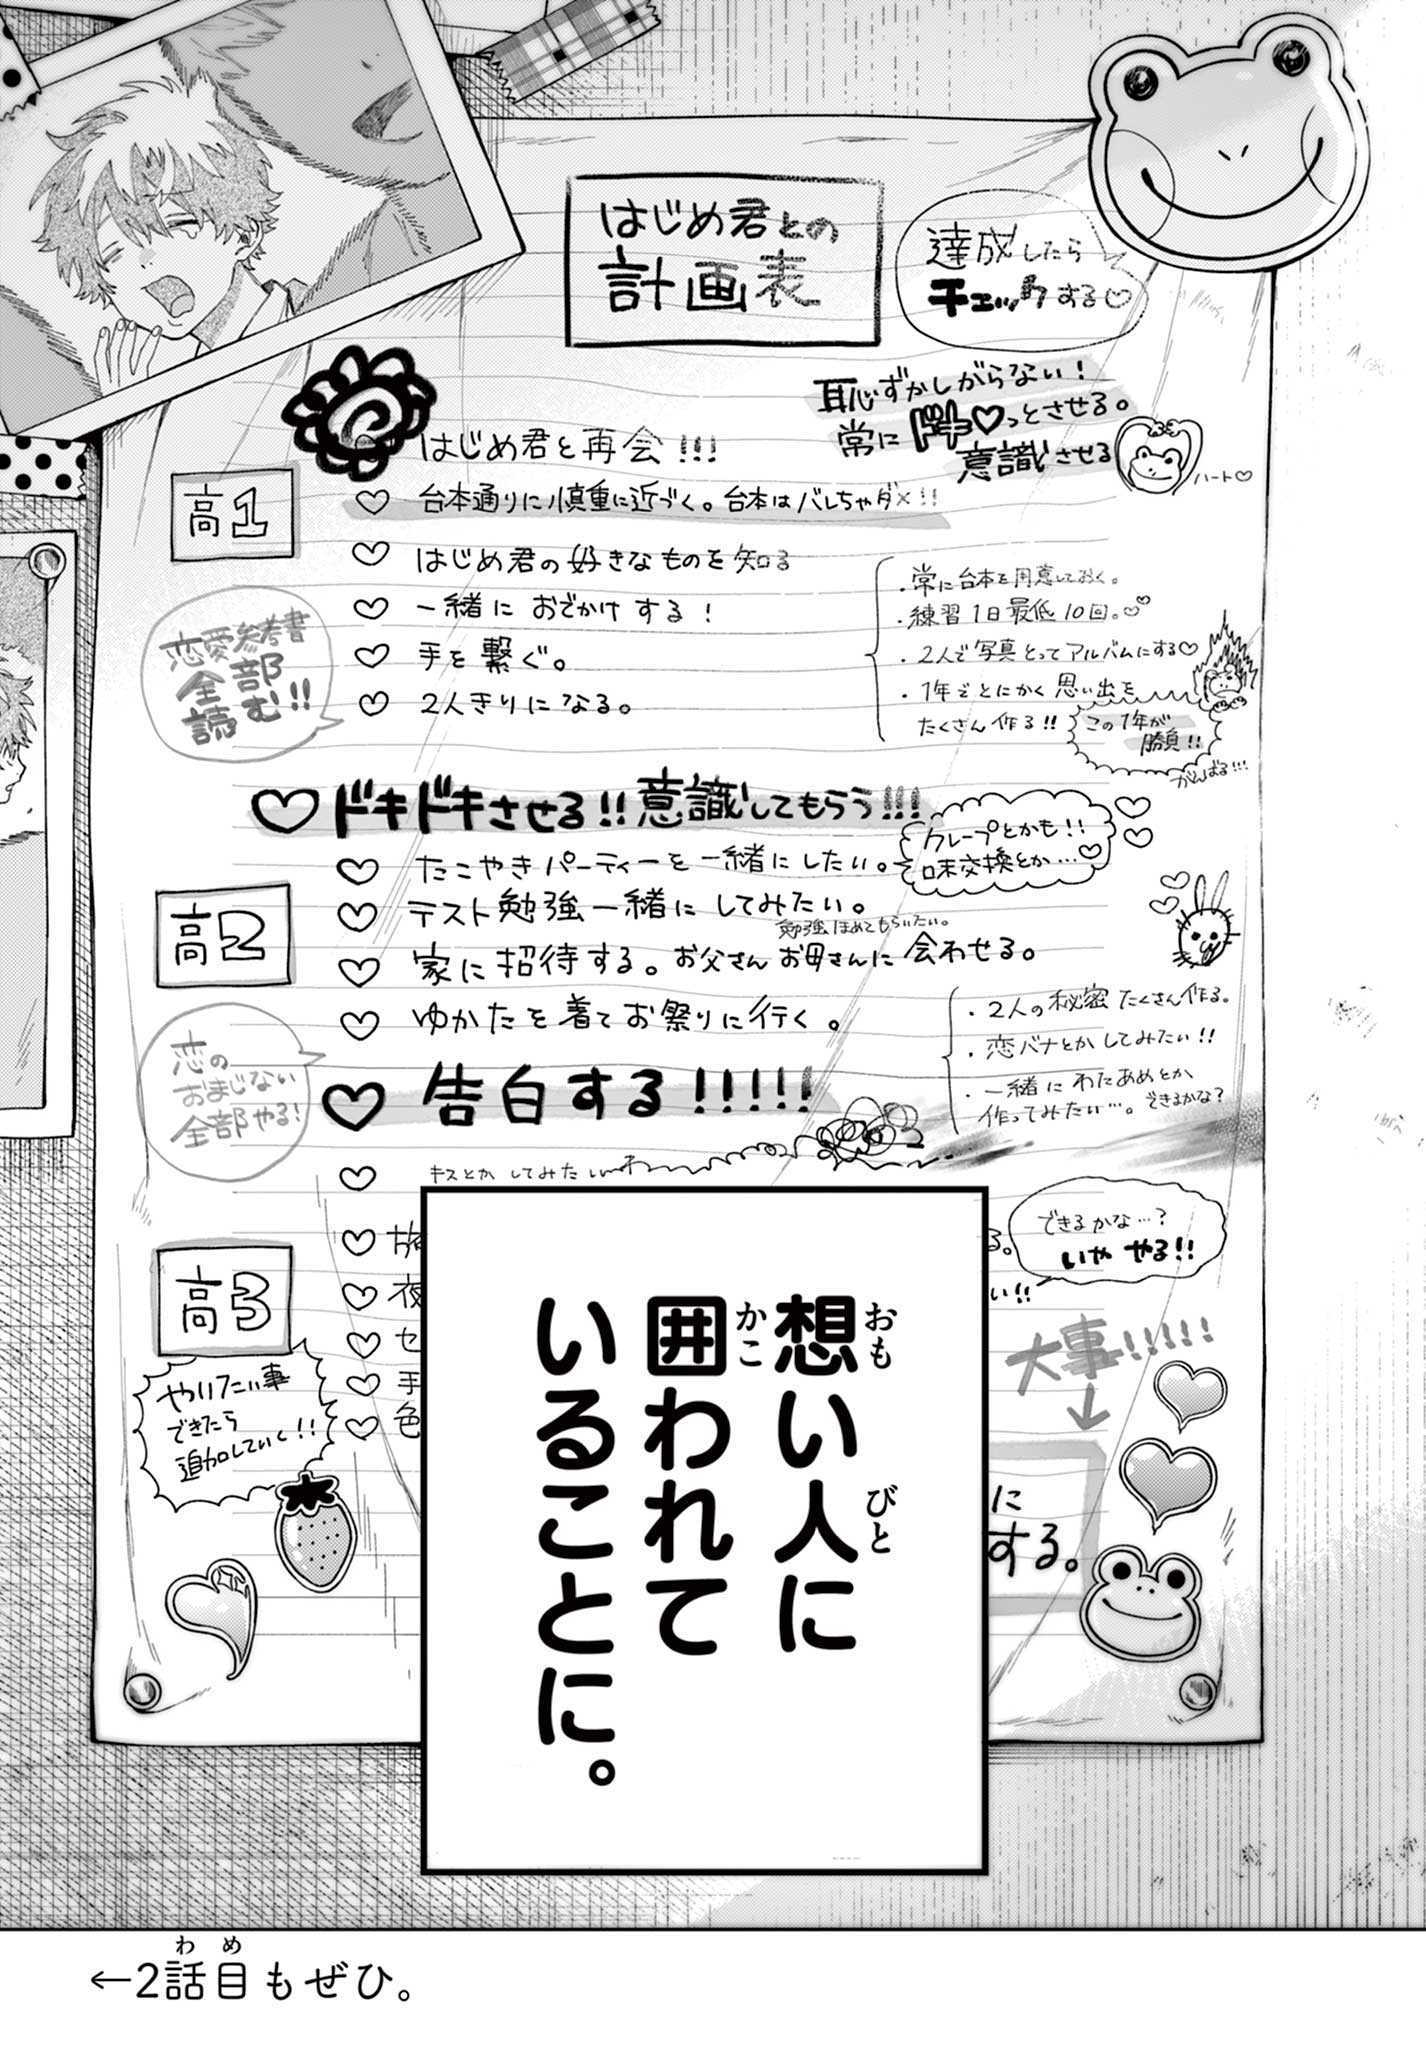 はじめ君との
計画表
達成したら
チェックする♡
恥ずかしがらない!
常にドキ♡っとさせる。
意識させる
ハート♡
はじめ君と再会!!!
高1
♡ 台本通りに慎重に近づく。台本はバレちゃダメ!!
♡ はじめ君の好きなものを知る
♡ 一緒におでかけする!
♡ 手を繋ぐ。
♡ 2人きりになる。
恋愛参考書
全部
読む!!
・常に台本を用意しておく。
・練習1日最低10回。♡♡
・2人で写真とってアルバムにする♡
・1年でとにかく思い出を
たくさん作る!!
この1年が
勝負!!
がんばる!!!
♡ドキドキさせる!!意識してもらう!!!
♡ たこやきパーティーを一緒にしたい。
クレープとかも!!
味交換とか…♡
高2
♡ テスト勉強一緒にしてみたい。
勉強ほめてもらいたい。
♡ 家に招待する。お父さんお母さんに会わせる。
♡ ゆかたを着てお祭りに行く。
♡ 告白する!!!!!
恋の
おまじない
全部やる!
・2人の秘密たくさん作る。
・恋バナとかしてみたい!!
・一緒にわたあめとか
作ってみたい…。できるかな?
♡ キスとかしてみたい
高3
♡
♡ 夜
♡ セ
♡ 手
♡ 色
できるかな…?
いややる!!
い!!
やりたい事
できたら
追加していく!!
大事!!!!!
↓
に
する。
想い人に
囲われて
いることに。
おも
びと
かこ
←2話目もぜひ。
わめ